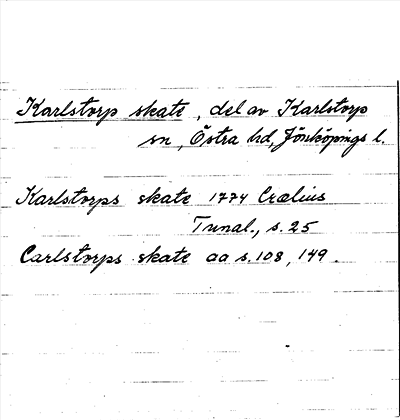 Karlstorp skate, del av Karlstorp
sn, Östra hd, Jönköpings l.
Karlstorps skate 1774 Crælius
Tunal., s. 25
Carlstorps skate aa s. 108, 149.